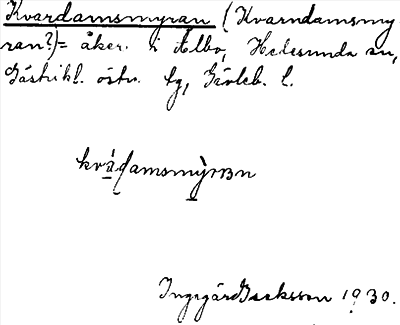 Kvardamsmyran (Kvarndamsmy
ran?) = åker. i Ålbo, Hedesunda sn,
Gästrikl. östr. tg, Gävleb. l.
kvá̱ɖamsmỳ̱rɐn
Ingegärd Isaksson 1930.